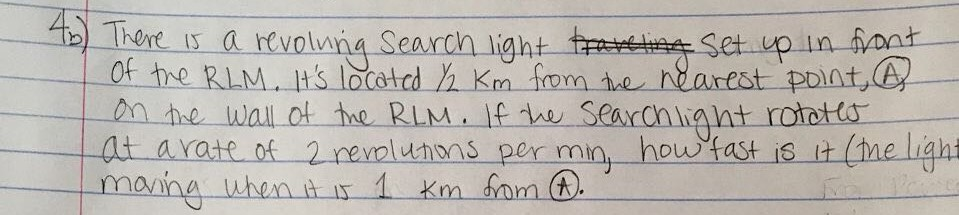 4b) There is a revolving Search light traveling set up in front
of the RLM. It's located 1/2 km from the nearest point, Ⓐ,
on the wall of the RLM. If the Searchlight rotates
at a rate of 2 revolutions per min, how fast is it (the light
moving when it is 1 km from Ⓐ.